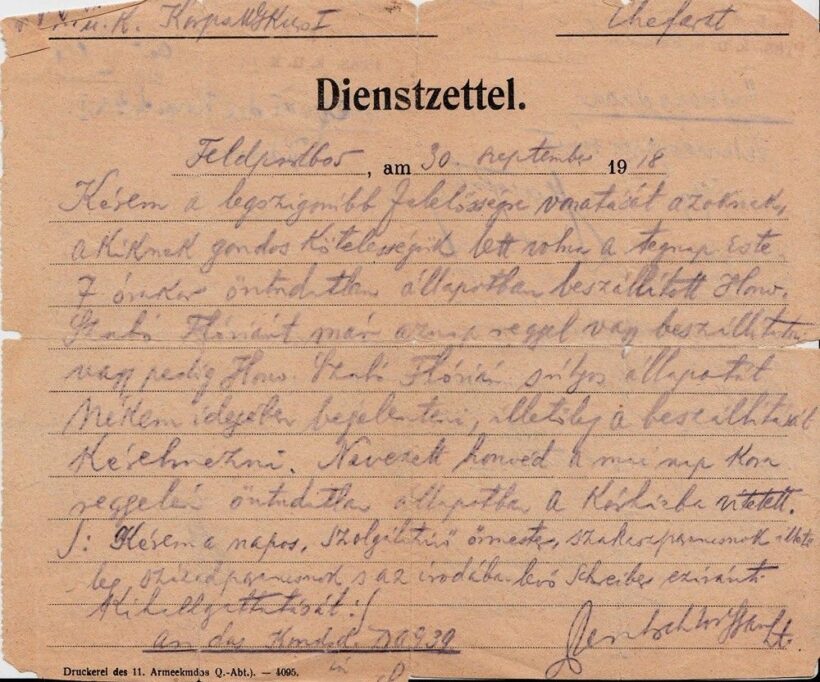 u. K. Korps Chefarzt
Dienstzettel.
Feldpostbos, am 30. september 1918
Kérem a legszigorúbb felelősségre vonatását azoknak,
akiknek gondos kötelességük lett volna a tegnap este
7 órakor öntudatlan állapotban beszállított Honv.
Szabó Flóriánt már aznap reggel vagy beszállittatni
vagy pedig Honv. Szabó Flórián súlyos állapotát
nékem idejében bejelenteni, illetőleg a beszállítását
kérelmezni. Nevezett honvéd a mai nap kora
reggelén öntudatlan állapotban a kórházba vitetett.
/: Kérem a napos, szolgálattevő őrmester, szakaszparancsnok illető
leg századparancsnok s az irodában levő Schreiber eziránti
kihallgattatását :/
an das Kondo. D
in
Druckerei des 11. Armeekmdos Q.-Abt.). — 4095.